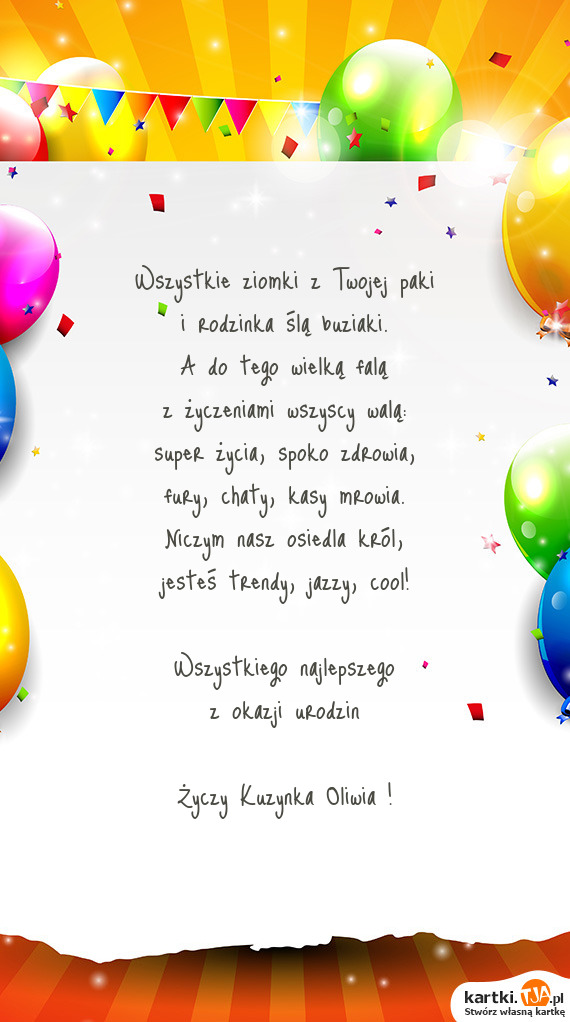 Wszystkie ziomki z Twojej paki
i rodzinka ślą buziaki.
A do tego wielką falą
z życzeniami wszyscy walą:
super życia, spoko zdrowia,
fury, chaty, kasy mrowia.
Niczym nasz osiedla król,
jesteś trendy, jazzy, cool!
Wszystkiego najlepszego
z okazji urodzin
Życzy Kuzynka Oliwia !
kartki.TJA.pl
Stwórz własną kartkę